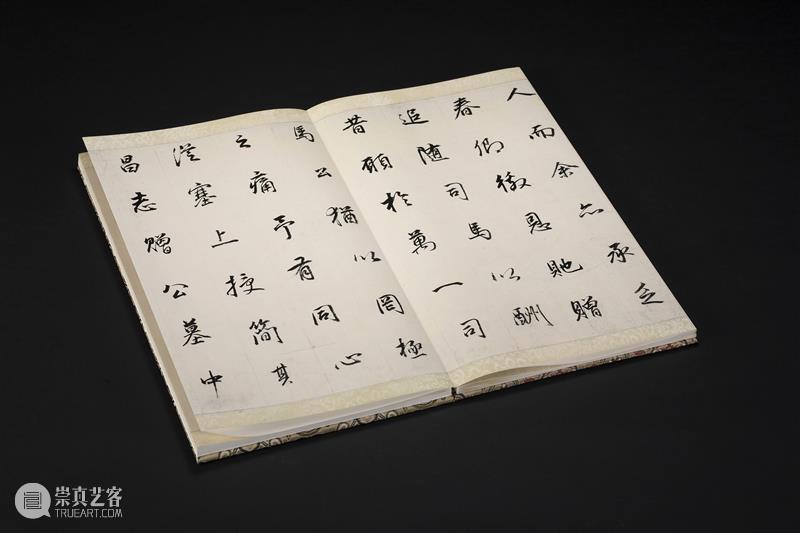 人而余亦承乏
春卿徼恩貤贈
追隨司馬以酬
昔願於萬一司
馬公猶以罔極
之痛予有同心
從塞上授簡其
昌志贈公墓中
崇真艺客
TRUEART.COM